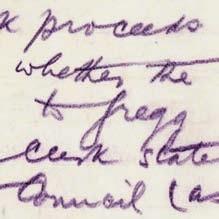 k proceeds
whether the
to Gregg
State
Council (as